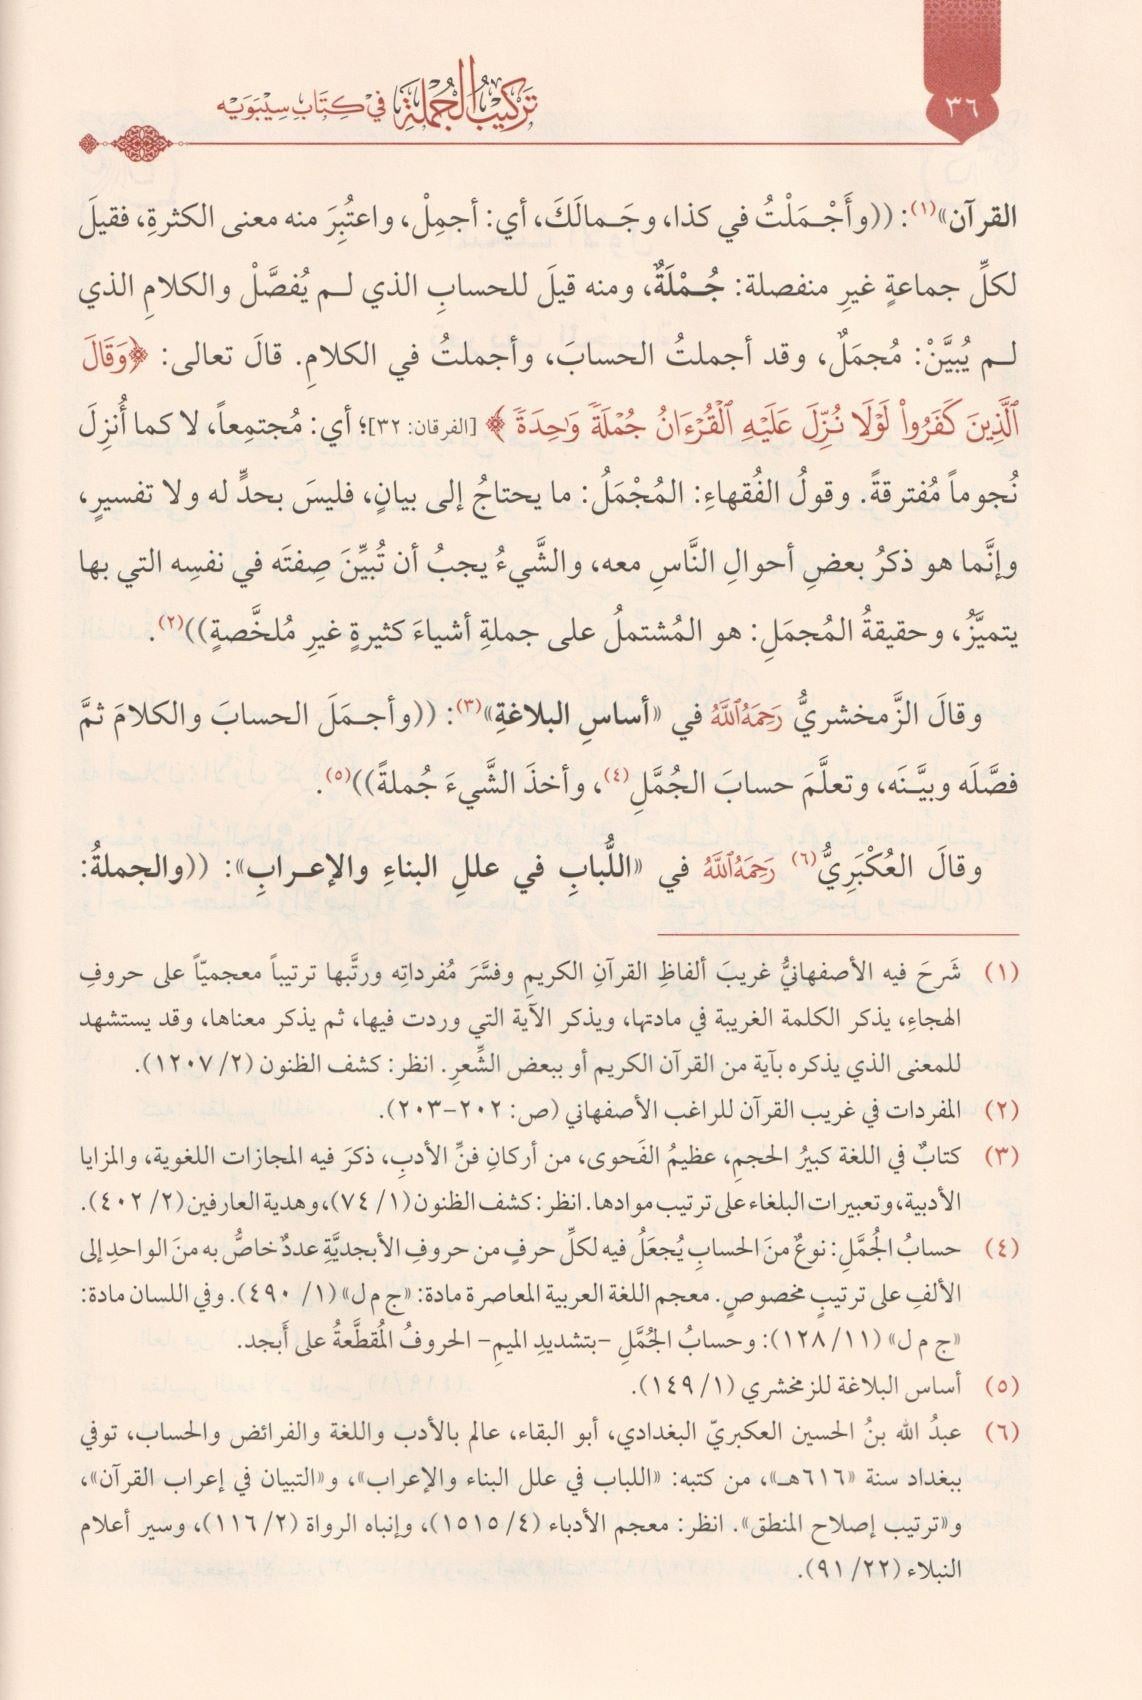 ٣٦
تَركيبُ الجُملَةِ في كِتَابِ سِيبَوَيْه
القرآن»(١): ((وأَجْمَلْتُ في كذا، وجَمالَكَ، أي: أجمِلْ، واعتُبِرَ منه معنى الكثرةِ، فقيلَ
لكلِّ جماعةٍ غيرِ منفصلة: جُمْلَةٌ، ومنه قيلَ للحسابِ الذي لم يُفصَّلْ والكلامِ الذي
لم يُبيَّنْ: مُجمَلٌ، وقد أجملتُ الحسابَ، وأجملتُ في الكلامِ. قالَ تعالى: ﴿وَقَالَ
ٱلَّذِينَ كَفَرُواْ لَوْلَا نُزِّلَ عَلَيْهِ ٱلْقُرْءَانُ جُمْلَةً وَٰحِدَةً﴾ [الفرقان: ٣٢]؛ أي: مُجتمِعاً، لا كما أُنزِلَ
نُجوماً مُفترقةً. وقولُ الفُقهاءِ: المُجْمَلُ: ما يحتاجُ إلى بيانٍ، فليسَ بحدٍّ له ولا تفسيرٍ،
وإنَّما هو ذكرُ بعضِ أحوالِ النَّاسِ معه، والشَّيءُ يجبُ أن تُبيِّنَ صِفتَه في نفسِه التي بها
يتميَّزُ، وحقيقةُ المُجمَلِ: هو المُشتملُ على جملةِ أشياءَ كثيرةٍ غيرِ مُلخَّصةٍ))(٢).
وقالَ الزَّمخشريُّ رَحِمَهُ ٱللَّهُ في «أساسِ البلاغةِ»(٣): ((وأجمَلَ الحسابَ والكلامَ ثمَّ
فصَّلَه وبيَّنَه، وتعلَّمَ حسابَ الجُمَّلِ(٤)، وأخذَ الشَّيءَ جُملةً))(٥).
وقالَ العُكْبَرِيُّ(٦) رَحِمَهُ ٱللَّهُ في «اللُّبابِ في عللِ البناءِ والإعرابِ»: ((والجملةُ:
(١) شَرحَ فيه الأصفهانيُّ غريبَ ألفاظِ القرآنِ الكريمِ وفسَّرَ مُفرداتِه ورتَّبها ترتيباً معجميّاً على حروفِ
الهجاءِ، يذكر الكلمة الغريبة في مادتها، ويذكر الآية التي وردت فيها، ثم يذكر معناها، وقد يستشهد
للمعنى الذي يذكره بآية من القرآن الكريم أو ببعض الشِّعرِ. انظر: كشف الظنون (٢/ ١٢٠٧).
(٢) المفردات في غريب القرآن للراغب الأصفهاني (ص: ٢٠٢-٢٠٣).
(٣) كتابٌ في اللغة كبيرُ الحجمِ، عظيمُ الفَحوى، من أركانِ فنِّ الأدبِ، ذكرَ فيه المجازات اللغوية، والمزايا
الأدبية، وتعبيرات البلغاء على ترتيب موادها. انظر: كشف الظنون (١/ ٧٤)، وهدية العارفين (٢/ ٤٠٢).
(٤) حسابُ الجُمَّلِ: نوعٌ منَ الحسابِ يُجعَلُ فيه لكلِّ حرفٍ من حروفِ الأبجديَّةِ عددٌ خاصٌّ به منَ الواحدِ إلى
الألفِ على ترتيبٍ مخصوصٍ. معجم اللغة العربية المعاصرة مادة: «ج م ل» (١/ ٤٩٠). وفي اللسان مادة:
«ج م ل» (١١/ ١٢٨): وحسابُ الجُمَّلِ -بتشديدِ الميمِ- الحروفُ المُقطَّعةُ على أَبجد.
(٥) أساس البلاغة للزمخشري (١/ ١٤٩).
(٦) عبدُ الله بنُ الحسين العكبريّ البغدادي، أبو البقاء، عالم بالأدب واللغة والفرائض والحساب، توفي
ببغداد سنة «٦١٦هـ»، من كتبه: «اللباب في علل البناء والإعراب»، و«التبيان في إعراب القرآن»،
و«ترتيب إصلاح المنطق». انظر: معجم الأدباء (٤/ ١٥١٥)، وإنباه الرواة (٢/ ١١٦)، وسير أعلام
النبلاء (٢٢/ ٩١).